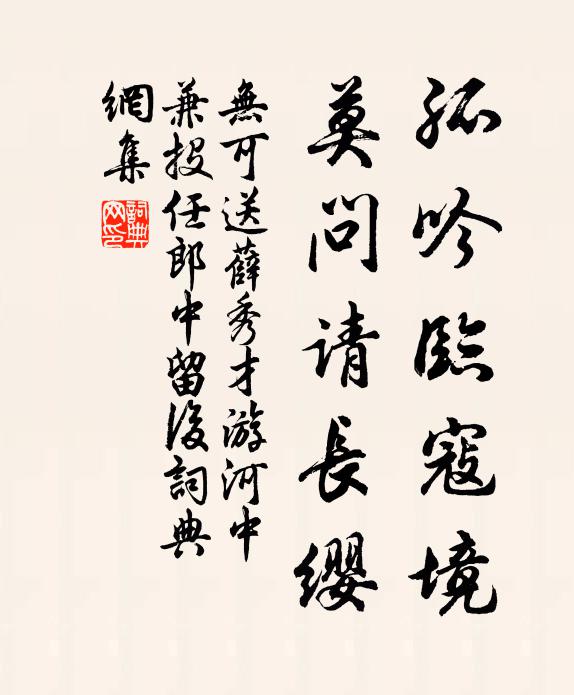 孤吟臨寇境
莫問请長纓
無可送薛秀才游河中
兼投任郎中留後詞典
網集
詞典网印